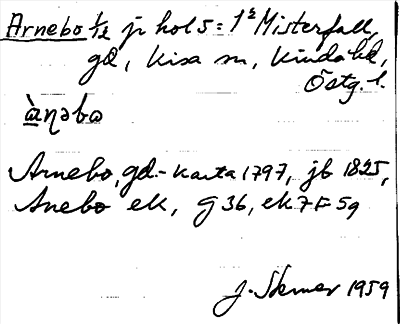 Arnebo 1/2 jr hol 5: 1 2 Misterfall,
gd, Kisa sn, Kinda hd,
Östg. l.
àṇəbω
Arnebo, gd.-karta 1797, jb 1825,
Anebo ek, G 36, ek 7 F 5g
J. Sterner 1959